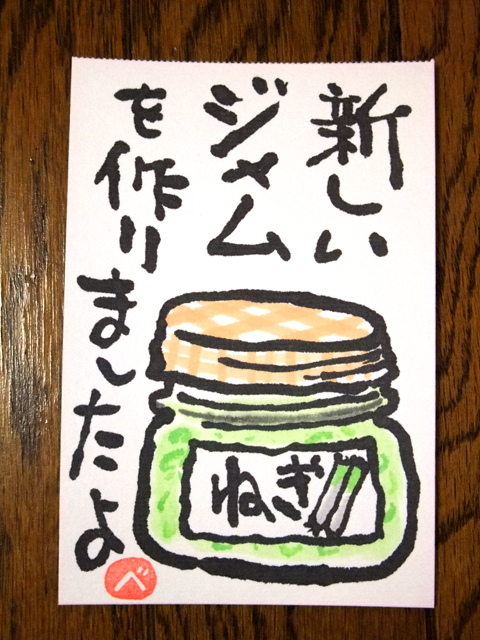 新しい
ジャム
を作りましたよ
ねぎ
べ